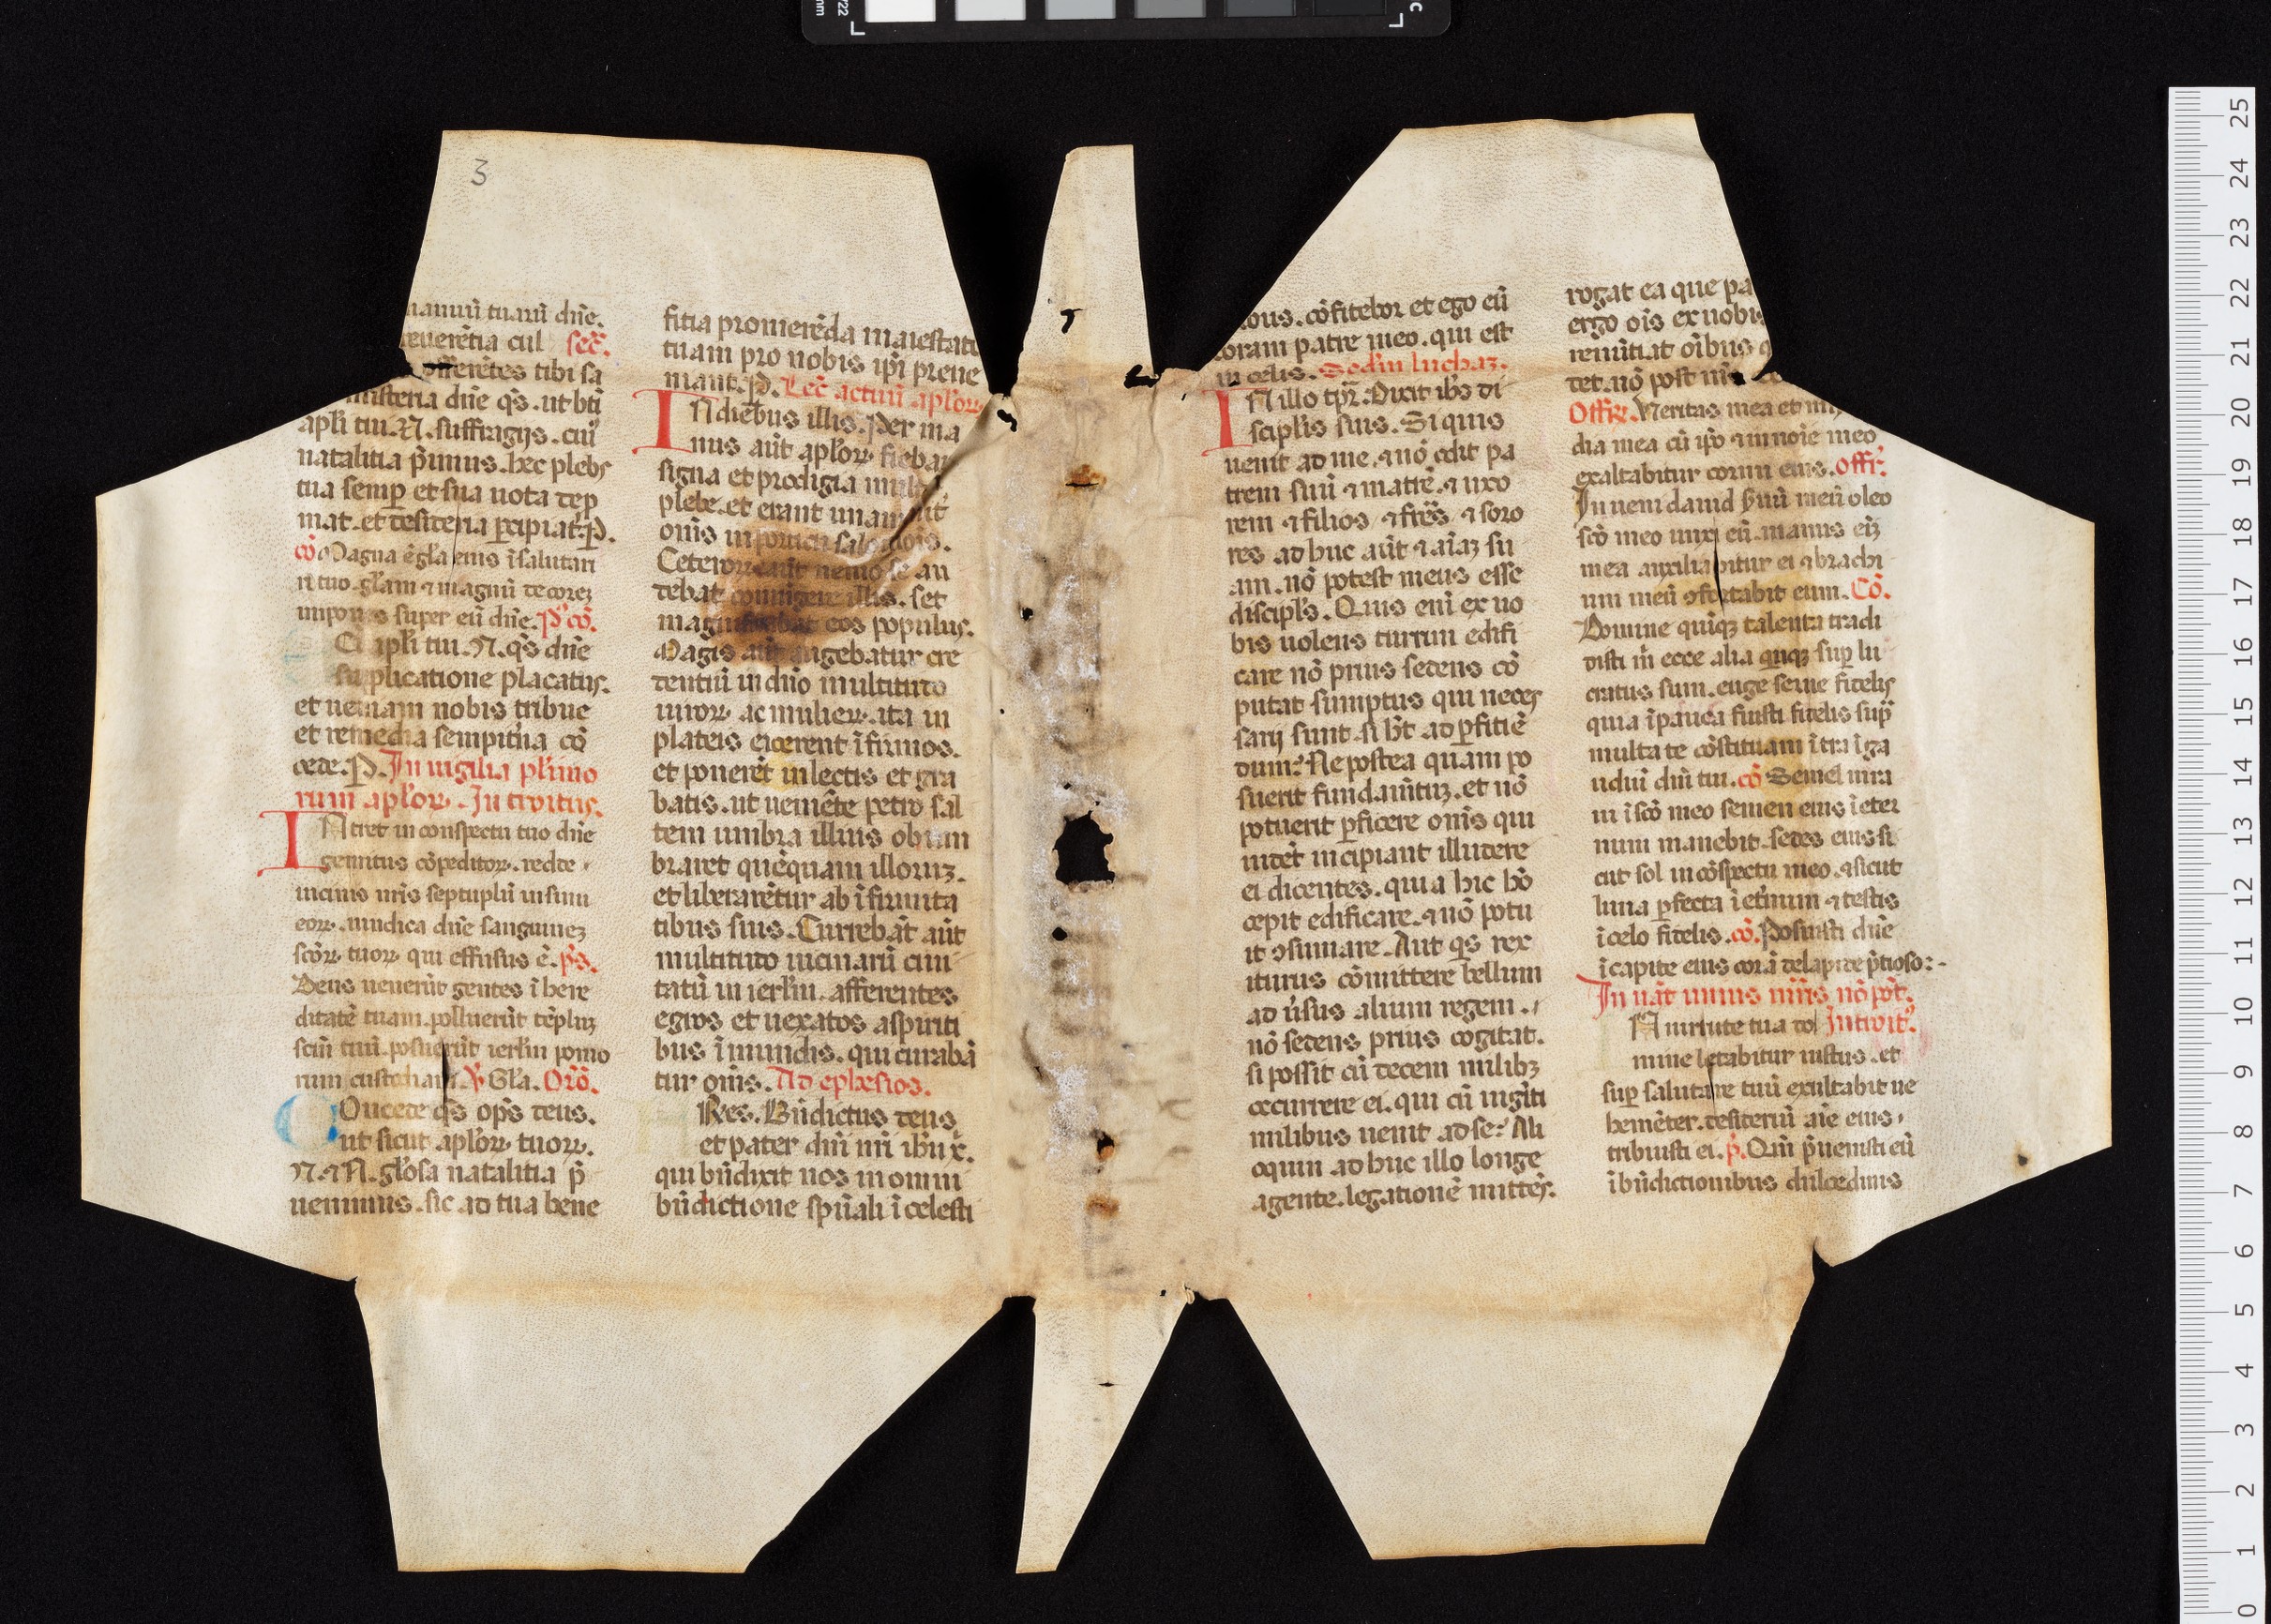 3
tuum dñe.
reuerẽtia cul secͬ.
offerẽtes tibi sa
misteria dñe q̃s. ut bti
apli tui. N. suffragijs. cuiꝰ
natalitia p̃imus. hec plebs
tua semꝑ et sua uota dep
mat. et desideria ꝑcipiat. P.
cõ Magna ẽ gl̃a eius ĩ salutari
ri tuo. gl̃am ⁊ magnũ decorẽ
impones super eũ dñe. P̃ cõ.
apl̃i tui. N. q̃s dñe
supplicatione placatus.
et ueniam nobis tribue
et remedia sempit̃na cõ
cede. P. In uigilia pl̃imo
rum apl̃oꝝ. Introitus.
INtret in conspectu tuo dñe
gemitus cõpeditoꝝ. redde
uicinis nr̃is septuplũ in sinu
eoꝝ. uindica dñe sanguinẽ
scõꝝ tuoꝝ qui effusus ẽ. p̃s.
Deus uenerũt gentes ĩ here
ditatẽ tuam. polluerũt tẽplũ
scm̃ tuũ. posuerũt ierl̃m pomo
rum custodiam. ℣ Gl̃a. Orõ.
COncede q̃s op̃s deus.
ut sicut apl̃oꝝ tuoꝝ.
N. ⁊ N. gl̃osa natalitia p̃
uenimus. sic ad tua bene
fitia promerẽda maiestatẽ
tuam pro nobis ip̃i preue
niant. P. Lec̃ actuũ apl̃oꝝ
IN diebus illis. Per ma
nus aũt apl̃oꝝ fiebãt
signa et prodigia multa
plebe. et erant unanimit̃
om̃s in porticu salomõis.
Ceteroꝝ aũt nemo se au
debat coniũgere illis. set
magnificabat eos populus.
Magis aũt augebatur cre
dentiũ in dño multitudo
uiroꝝ ac mulieꝝ. ita in
plateis eicerent ĩfirmos.
et ponerẽt in lectis et gra
batis. ut ueniẽte petro sal
tem umbra illius obum
braret quẽquam illoruꝫ.
et liberarẽtur ab ĩfirmita
tibus suis. Currebãt aũt
multitudo uicinarũ ciui
tatũ in ierl̃m. afferentes
egros et uexatos a spiriti
bus ĩmundis. qui curabã
tur om̃s. Ad ephesios.
FRes. Bñdictus deus
et pater dñi nr̃i ihũ x̃.
qui bñdixit nos in omni
bñdictione spũali ĩ celesti
cõfitebor et ego eũ
coram patre meo. qui est
in celis. Scd̃m luchaꝫ.
IN illo tp̃r. Dixit ihs̃ di
scipl̃is suis. Si quis
uenit ad me. ⁊ nõ odit pa
trem suũ ⁊ matrẽ. ⁊ uxo
rem ⁊ filios ⁊ fres̃ ⁊ soro
res ad huc aũt ⁊ aĩaꝫ su
am. nõ potest meus esse
discipl̃s. Quis eni ex uo
bis uolens turrim edifi
care nõ prius sedens cõ
putat sumptus qui neces
sarij sunt. si h̃t ad ꝑfitiẽ
dum? Ne postea quam po
suerit fundam̃tuꝫ. et nõ
potuerit ꝑficere om̃s qui
uidẽt incipiant illudere
ei dicentes. quia hic hõ
cepit edificare. ⁊ nõ potu
it ꝯsumare. Aut q̃s rex
iturus cõmittere bellum
ad ũsus alium regem.
nõ sedens prius cogitat.
si possit cũ decem milibꝫ
occurrere ei. qui cũ uigĩti
milibus uenit ad se? Ali
oquin ad huc illo longe
agente. legationẽ mittẽs.
rogat ea que pa
ergo ois̃ ex uobis
renũtiat oĩbus q
det. nõ post m̃s
Offr̃. Ueritas mea et mi
dia mea cũ ip̃o ⁊ in noĩe meo
exaltabitur cornu eius. Offr̃.
Inueni dauid s̃uũ meũ oleo
scõ meo unxi eũ. manus eiꝫ
mea auxiliabitur ei ⁊ brachi
um meũ ꝯfortabit eum. Cõ.
Domine quĩqꝫ talenta tradi
disti m̃ ecce alia quĩqꝫ suꝑ lu
cratus sum. euge serue fidelis
quia ĩ pauca fuisti fidelis sup̃
multa te cõstituam ĩtra ĩ ga
udiũ dñi tui. cõ Semel iura
ui ĩ scõ meo semen eius ĩ eter
num manebit. sedes eius si
cut sol in cõspectu meo. ⁊ sicut
luna ꝑfecta ĩ et̃num ⁊ testis
ĩ celo fidelis. cõ. Posuisti dñe
ĩ capite eius corõã de lapide p̃tioso:-
In nat̃ unius mr̃is nõ põt.
IN uirtute tua do Introitꝰ.
mine letabitur iustus. et
suꝑ salutare tuũ exultabit ue
hemẽter. desideriũ aĩe eius
tribuisti ei. p̃. Qm̃ p̃uenisti eũ
ĩ bñdictionibus dulcedinis